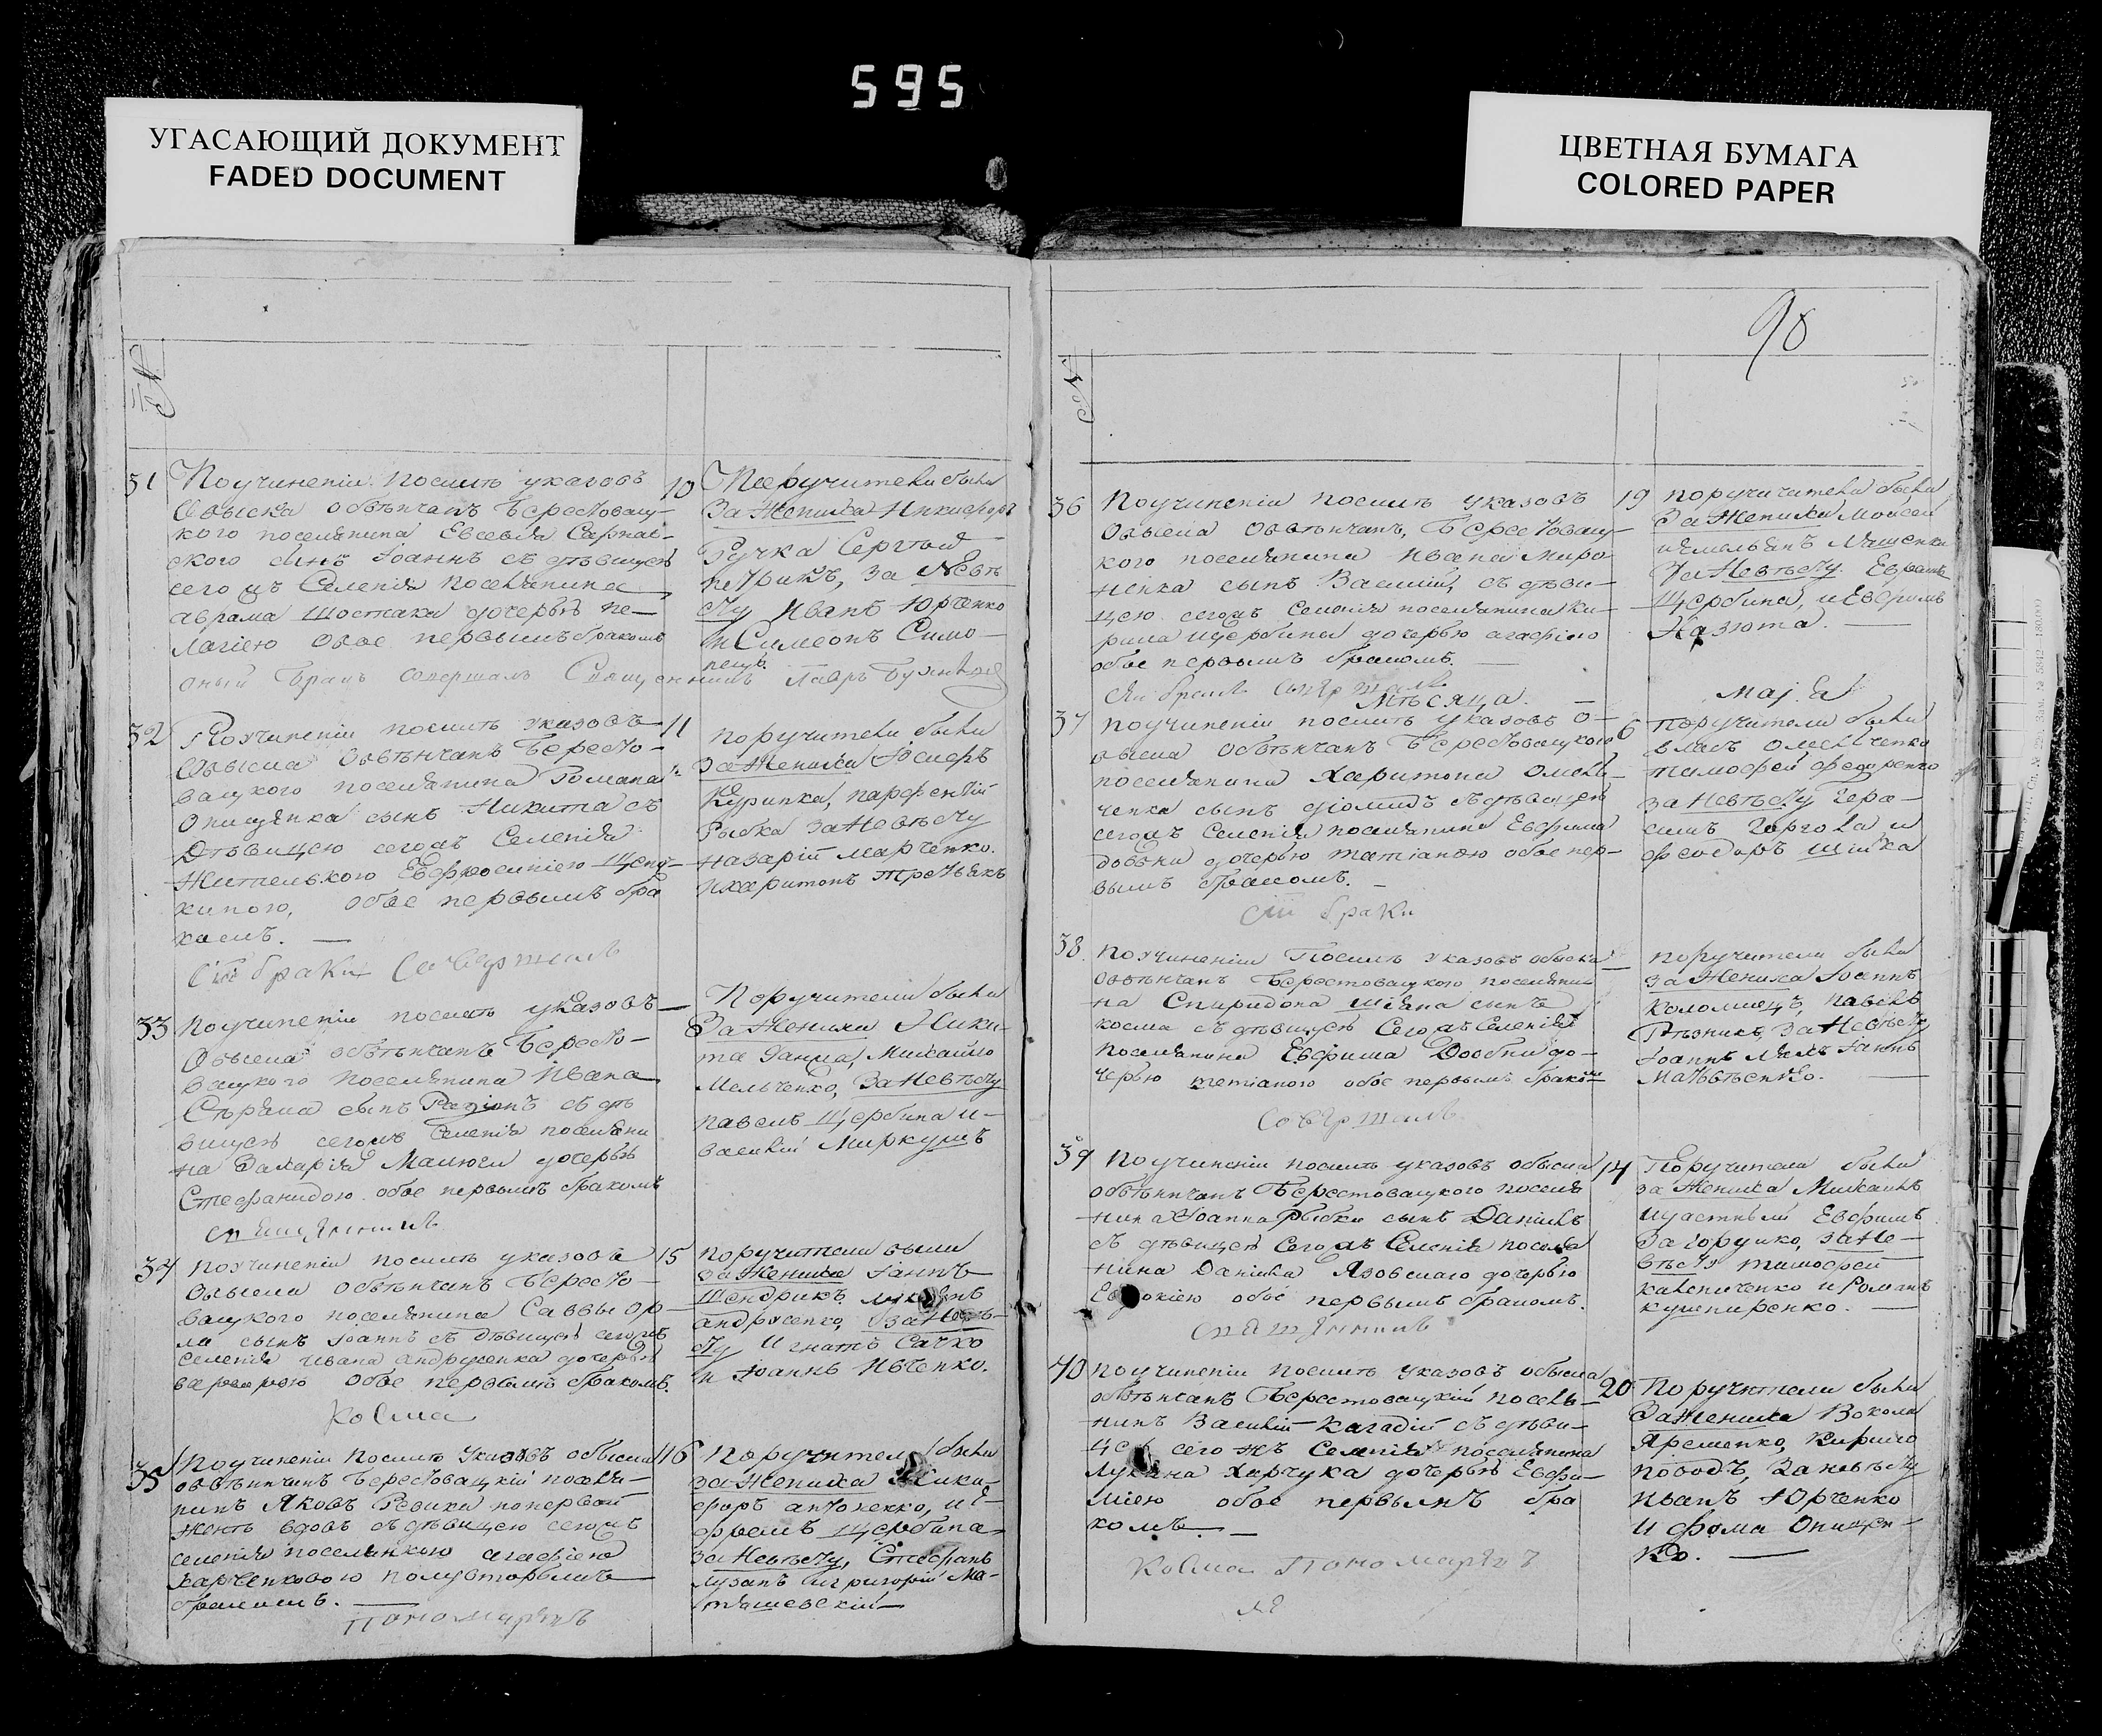 595
УГАСАЮЩИЙ ДОКУМЕНТ
FADED DOCUMENT
ЦВЕТНАЯ БУМАГА
COLORED PAPER
98
31 Поучиненіи посилъ указовъ
Обыска обвѣнчанъ Берестовац-
кого поселянина Евсевія
ского сынъ Іоаннъ съ дѣвицею
сего жъ Селенія поселянина
аврама Шостака дочерью пе-
лагіею обое первымъ бракомъ
10 Поручители были
За Жениха Никифоръ
Ручка Сергѣй
петрикъ, за Невѣ
сту Иванъ Юрченко
и Симеонъ Симо-
оный Бракъ совершалъ Священникъ Лавръ
32 Поучиненіи посилъ указовъ
Обыска Обвѣнчанъ Бересто-
вацкого поселянина Романа
Опищенка сынъ Никита съ
Дѣвицею сегожъ Селенія
Жителькою Евфросиніею
киною, обое первымъ бра
комъ.
11 поручители были
За Жениха Іосифъ
Куринка, парфентій
Рыбка За Невѣсту
назарій марченко
ихаритонъ третьякъ
сіи браки Совершалъ
33 Поучиненіи посилъ указовъ
Обыска обвѣнчанъ Бересто-
вацкого поселянина Ивана
сынъ Родіонъ съ дѣ
вицею сегожъ Селенія поселяни
на Захарія Малюги дочерью
Стефанидою обое первымъ бракомъ
Поручители были
За Жениха Ники-
та Ганжа, Михайло
Мельченко, За Невѣсту
павелъ Щербина и
василій Миркушъ
священникъ
34 Поучиненіи посилъ указовъ
Обыска обвѣнчанъ Бересто-
вацкого поселянина Саввы Ор-
ла сынъ Іоаннъ съ Дѣвицею сегожъ
Селенія Ивана андрусенка дочерью
варварою обое первымъ бракомъ.
15 поручители были
за Жениха Іаннъ
Шендрикъ
андрусенко, За Невѣ-
сту Игнатъ Сачко
и Іоаннъ Ивченко.
Косма
35 Поучиненіи посилъ Указовъ обыска
обвѣнчанъ Берестовацкій посели-
нинъ Яковъ Ревика попервой
женѣ вдовъ съ дѣвицею сегожъ
селенія поселянкою агафіею
харченковою полувторымъ
бракомъ.
16 Поручители были
за Жениха Ники-
форъ антоненко, и Е-
фремъ Щербина
за Невѣсту, Стефанъ
Лузанъ и григорій Ма-
тяшевскій
Пономаревъ
36 Поучиненіи посилъ указовъ
Обыска Обвѣнчанъ, Берестовац-
кого поселянина Ивана Миро-
ненка сынъ Василій, съ дѣви-
цею сегожъ Селенія поселянина Ки-
рила Щербины дочерью агафіею
обое первымъ бракомъ.
19 поручители были
За Жениха Моисей
иемельянъ Лященки
За Невѣсту Ефремъ
Щербина, и Ефремъ
Казюта.
Сіи браки совершалъ
Мѣсяца. Маја
37 поучиненіи посилъ указовъ о-
быска обвѣнчанъ Берестовацкого
поселянина Харитона Омель-
ченка сынъ Діомидъ съ дѣвицею
сегожъ Селенія поселянина Евфима
довбни дочерью татіаною обое пер-
вымъ бракомъ.
6 Поручители были
власъ Омельченко
тимофей федоренко
За Невѣсту Гера-
симъ Горгола и
феодоръ Шійка
Сіи браки
38. поучиненіи Посилъ Указовъ обыска
обвѣнчанъ Берестовацкого поселяни-
на Спиридона Шіяна сынъ
косма съ дѣвицею Сегожъ Селенія
поселянина Евфима Довбни до-
черью татіаною обое первымъ бракомъ
поручители были
за Жениха Іоаннъ
коломиецъ, павелъ
Рѣзникъ, За Невѣсту
Іоаннъ Ляхъ Іаннъ
Матвѣенко.
Совершалъ
39 Поучиненіи посилъ указовъ обыска
обвѣнчанъ Берестовацкого поселя
нина Іоанна Рыбки сынъ Даніилъ
съ дѣвицею Сегожъ Селенія поселя
нина Даніила Язовскаго дочерью
Евдокіею обое первымъ бракомъ.
14 Поручители были
за Жениха Михаилъ
щастный Евфимъ
Загорулко, за Не-
вѣсту тимофей
капниченко и Романъ
кушниренко.
священникъ
40 поучиненіи посилъ Указовъ обыска
обвѣнчанъ Берестовацкій посель-
нинъ Василій Кагадій съ дѣви-
цею сего жъ Селенія поселянина
Лукіяна Харчука дочерью Евфи-
міею обое первымъ бра
комъ.
20 Поручители были
За Жениха Вокола
Яременко, Кирило
поводъ, За невѣсту
иванъ Юрченко
и фома Опищен-
ко.
Косма Пономаревъ